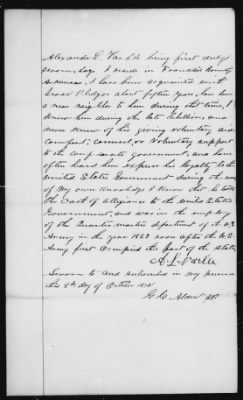 Alexander L. Varble being first duly
sworn says I reside in Franklin County
Arkansas I have been acquainted with
Isaac Pledger about fifteen years, have been
a near neighbor to him during that time, I
knew him during the late rebellion, and
never knew of his giving voluntary aid
comfort, counsel, or voluntary support
to the confederate government, and have
often heard him express his loyalty to the
united States Government during the war
of my own knowledge I know that he took
the Oath of allegiance to the united States
Government, and was in the employ
of the Quarter masters department of the U.S.
Army in the year 1863 soon after the U.S.
Army first occupied this part of the State
A. L. Varble
Sworn to and subscribed in my presence
this 8th day of October 187
G. C.